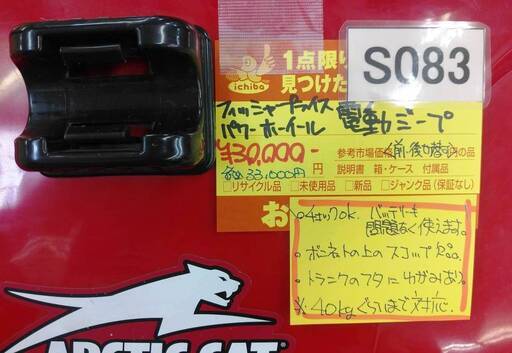 1点限り
見つけた
ichiba
S083
フィッシャープライス
パワーホイール 電動ジープ
¥30,000-
円
税込33,000円
参考市場価格
(前・後切替) の品
説明書 箱・ケース 付属品
□リサイクル品 □未使用品 □新品 □ジャンク品(保証なし)
お
○4セックok. バッテリーも
問題なく使えます。
・ボンネットの上のスコップ欠品。
・トランクのフタにゆがみあり。
※40kgぐらいまで対応.
ARCTIC CAT